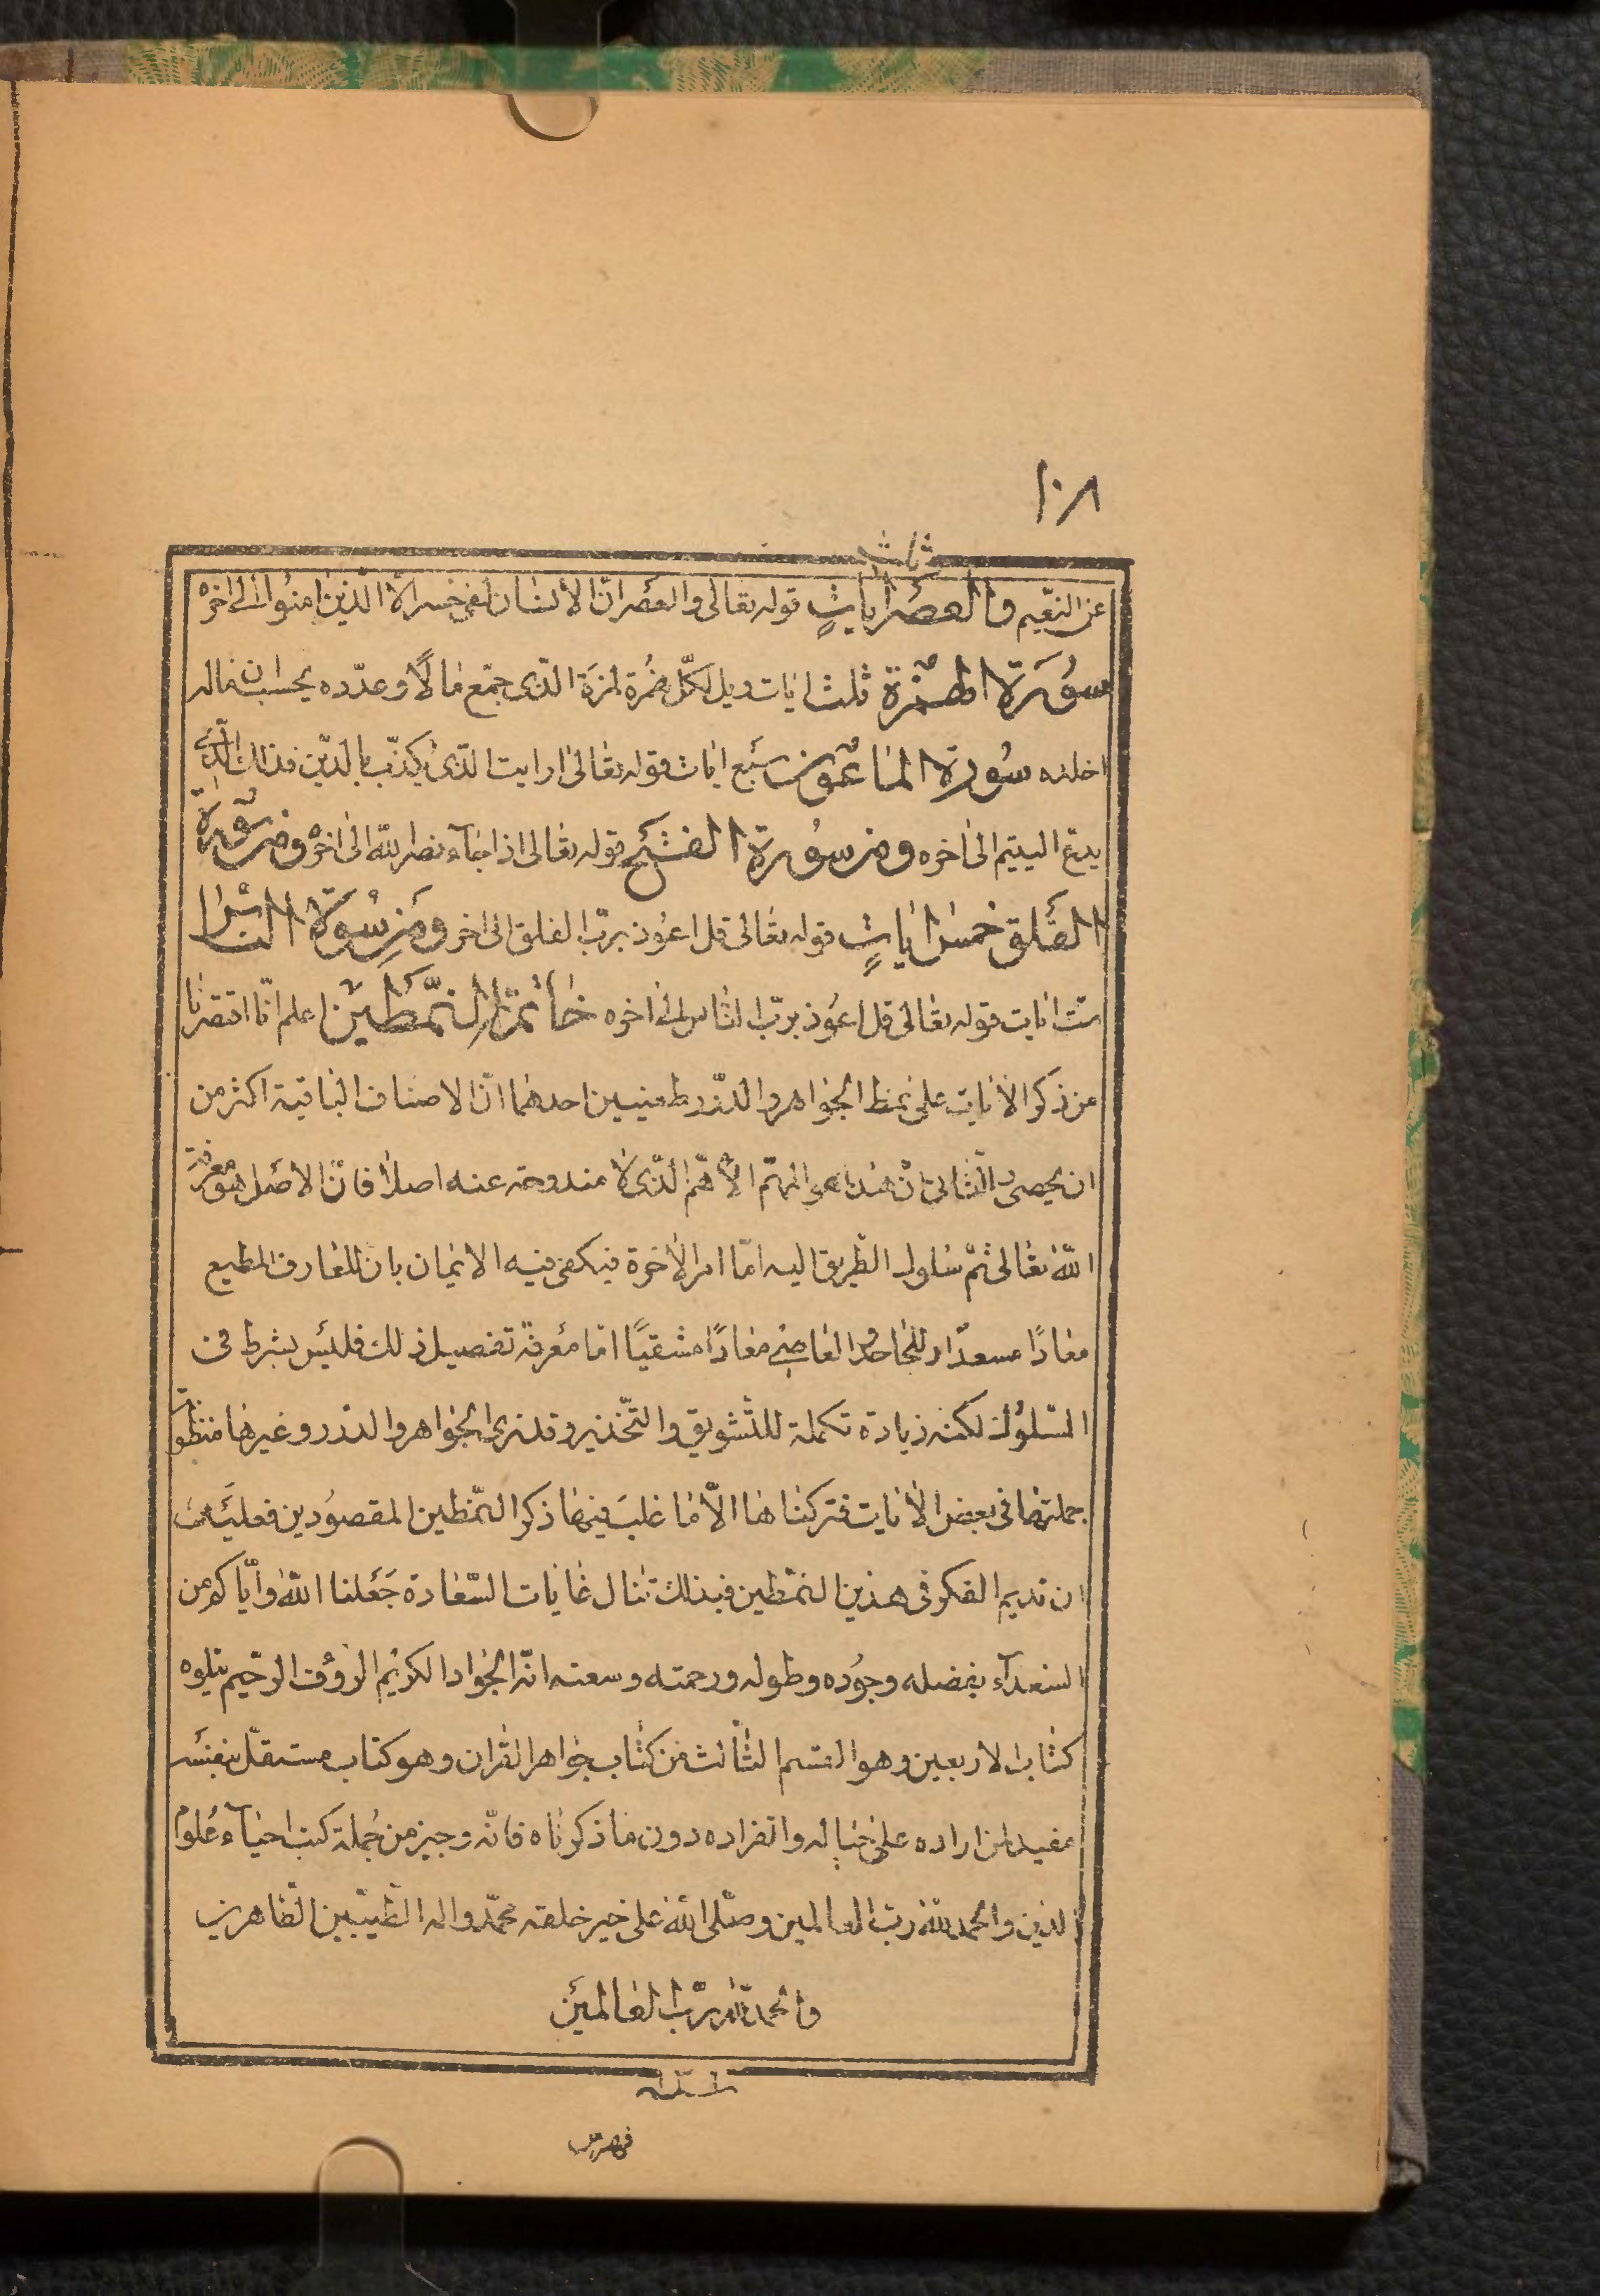 ١٠٨
ثلث
عن النعيم والعصر ايات قوله تعالى والعصر انّ الانسان لفى خسر الّا الّذين امنوا الى اخره
سورة الهمزة ثلث ايات ويل لكلّ همزة لمزة الذى جمع مالًا وعدّده يحسب ان ماله
اخلده سورة الماعون سبع ايات قوله تعالى ارايت الّذى يكذّب بالدّين فذلك الّذى
يدع اليتيم الى اخره ومن سورة الفتح قوله تعالى اذا جاء نصر الله الى اخره ومن سورة
الفلق خمس ايات قوله تعالى قل اعوذ بربّ الفلق الى اخره ومن سورة الناس
ستّ ايات قوله تعالى قل اعوذ بربّ الناس الى اخره خاتمة النّمطين اعلم انّا اقتصرنا
من ذكر الايات على نمط الجواهر والدّرر لمعنيين احدهما انّ الاصناف الباقية اكثر من
ان يحصى والثّانى انّ هذا هو المهمّ الاهمّ الّذى لا مندوحة عنه اصلًا فانّ الاصل هو معرفة
اللّه تعالى ثمّ سلوك الطّريق اليه امّا امر الاخرة فيكفى فيه الايمان بان للعارف المطيع
معادًا مسعدًا وللجاحد العاصى معادًا مشقيًا امّا معرفة تفصيل ذلك فليس بشرط فى
السّلوك لكنه زيادة تكملة للتّشويق والتّحذير وقد نرى الجواهر والدّرر وغيرها منظو
جملتها فى بعض الايات فتركناها الّا ما غلب فيها ذكر النّمطين المقصودين فعليك
ان تديم الفكر فى هذين النمطين فبذلك تنال غايات السّعادة جعلنا اللّه وايّاكم من
السّعداء بفضله وجوده وطوله ورحمته وسعته انّه الجواد الكريم الرّؤف الرّحيم يتلوه
كتاب الاربعين وهو القسم الثّالث من كتاب جواهر القران وهو كتاب مستقلّ بنفسه
مفيد لمن اراده على حياله وانفراده دون ما ذكرناه فانّه وجيز من جملة كتب احياء علوم
الدّين والحمد للّه ربّ العالمين وصلّى اللّه على خير خلقه محمّد واله الطّيّبين الطّاهرين
والحمد للّه ربّ العالمين
فهرس